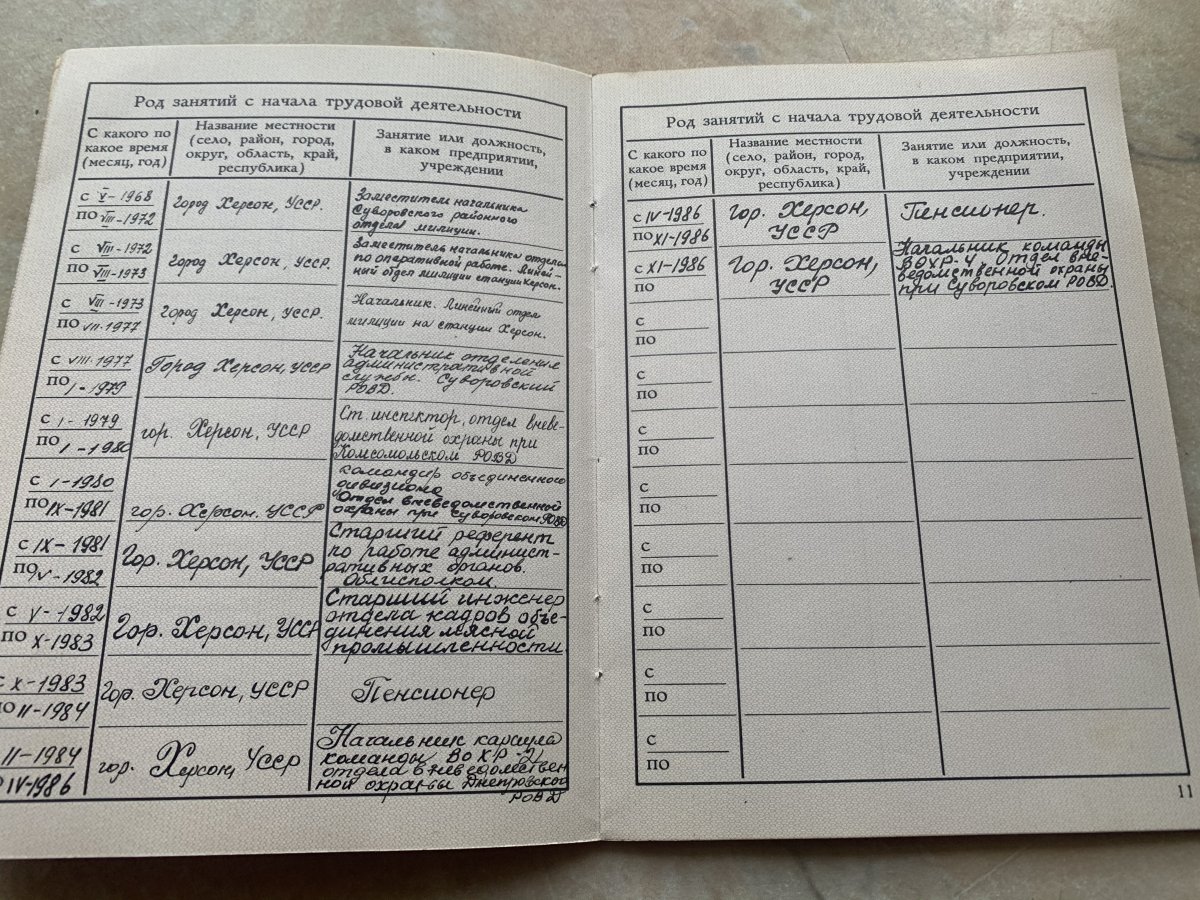 Род занятий с начала трудовой деятельности
С какого по
какое время
(месяц, год)
Название местности
(село, район, город,
округ, область, край,
республика)
Занятие или должность,
в каком предприятии,
учреждении
с V-1968
по VIII-1972
Город Херсон, УССР.
Заместитель начальника
Суворовского районного
отдела милиции.
с VIII-1972
по VIII-1973
Город Херсон, УССР.
Заместитель начальника отдела
по оперативной работе. Линей-
ный отдел милиции станции Херсон.
с VIII-1973
по VII-1977
Город Херсон, УССР.
Начальник. Линейный отдел
милиции на станции Херсон.
с VIII-1977
по I-1979
Город Херсон, УССР
Начальник отделения
административной
службы. Суворовский
РОВД.
с I-1979
по I-1980
гор. Херсон, УССР
Ст. инспектор, отдел вневе-
домственной охраны при
Комсомольском РОВД
с I-1980
по IX-1981
гор. Херсон. УССР
командир объединенного
дивизиона
Отдел вневедомственной
охраны при Суворовском РОВД
с IX-1981
по V-1982
Гор. Херсон, УССР
Старший референт
по работе админист-
ративных органов.
Облисполком.
с V-1982
по X-1983
Гор. Херсон, УССР
Старший инженер
отдела кадров объе-
динения мясной
промышленности
с X-1983
по II-1984
Гор. Херсон, УССР
Пенсионер
II-1984
IV-1986
гор. Херсон, УССР
Начальник караула
команды ВОХР-2
отдела вневедомствен
ной охраны Днепровского
РОВД
Род занятий с начала трудовой деятельности
С какого по
какое время
(месяц, год)
Название местности
(село, район, город,
округ, область, край,
республика)
Занятие или должность,
в каком предприятии,
учреждении
с IV-1986
по XI-1986
Гор. Херсон,
УССР
Пенсионер.
с XI-1986
по
Гор. Херсон,
УССР
Начальник команды
ВОХР-4. Отдел вне-
ведомственной охраны
при Суворовском РОВД.
с
по
с
по
с
по
с
по
с
по
с
по
с
по
с
по
11